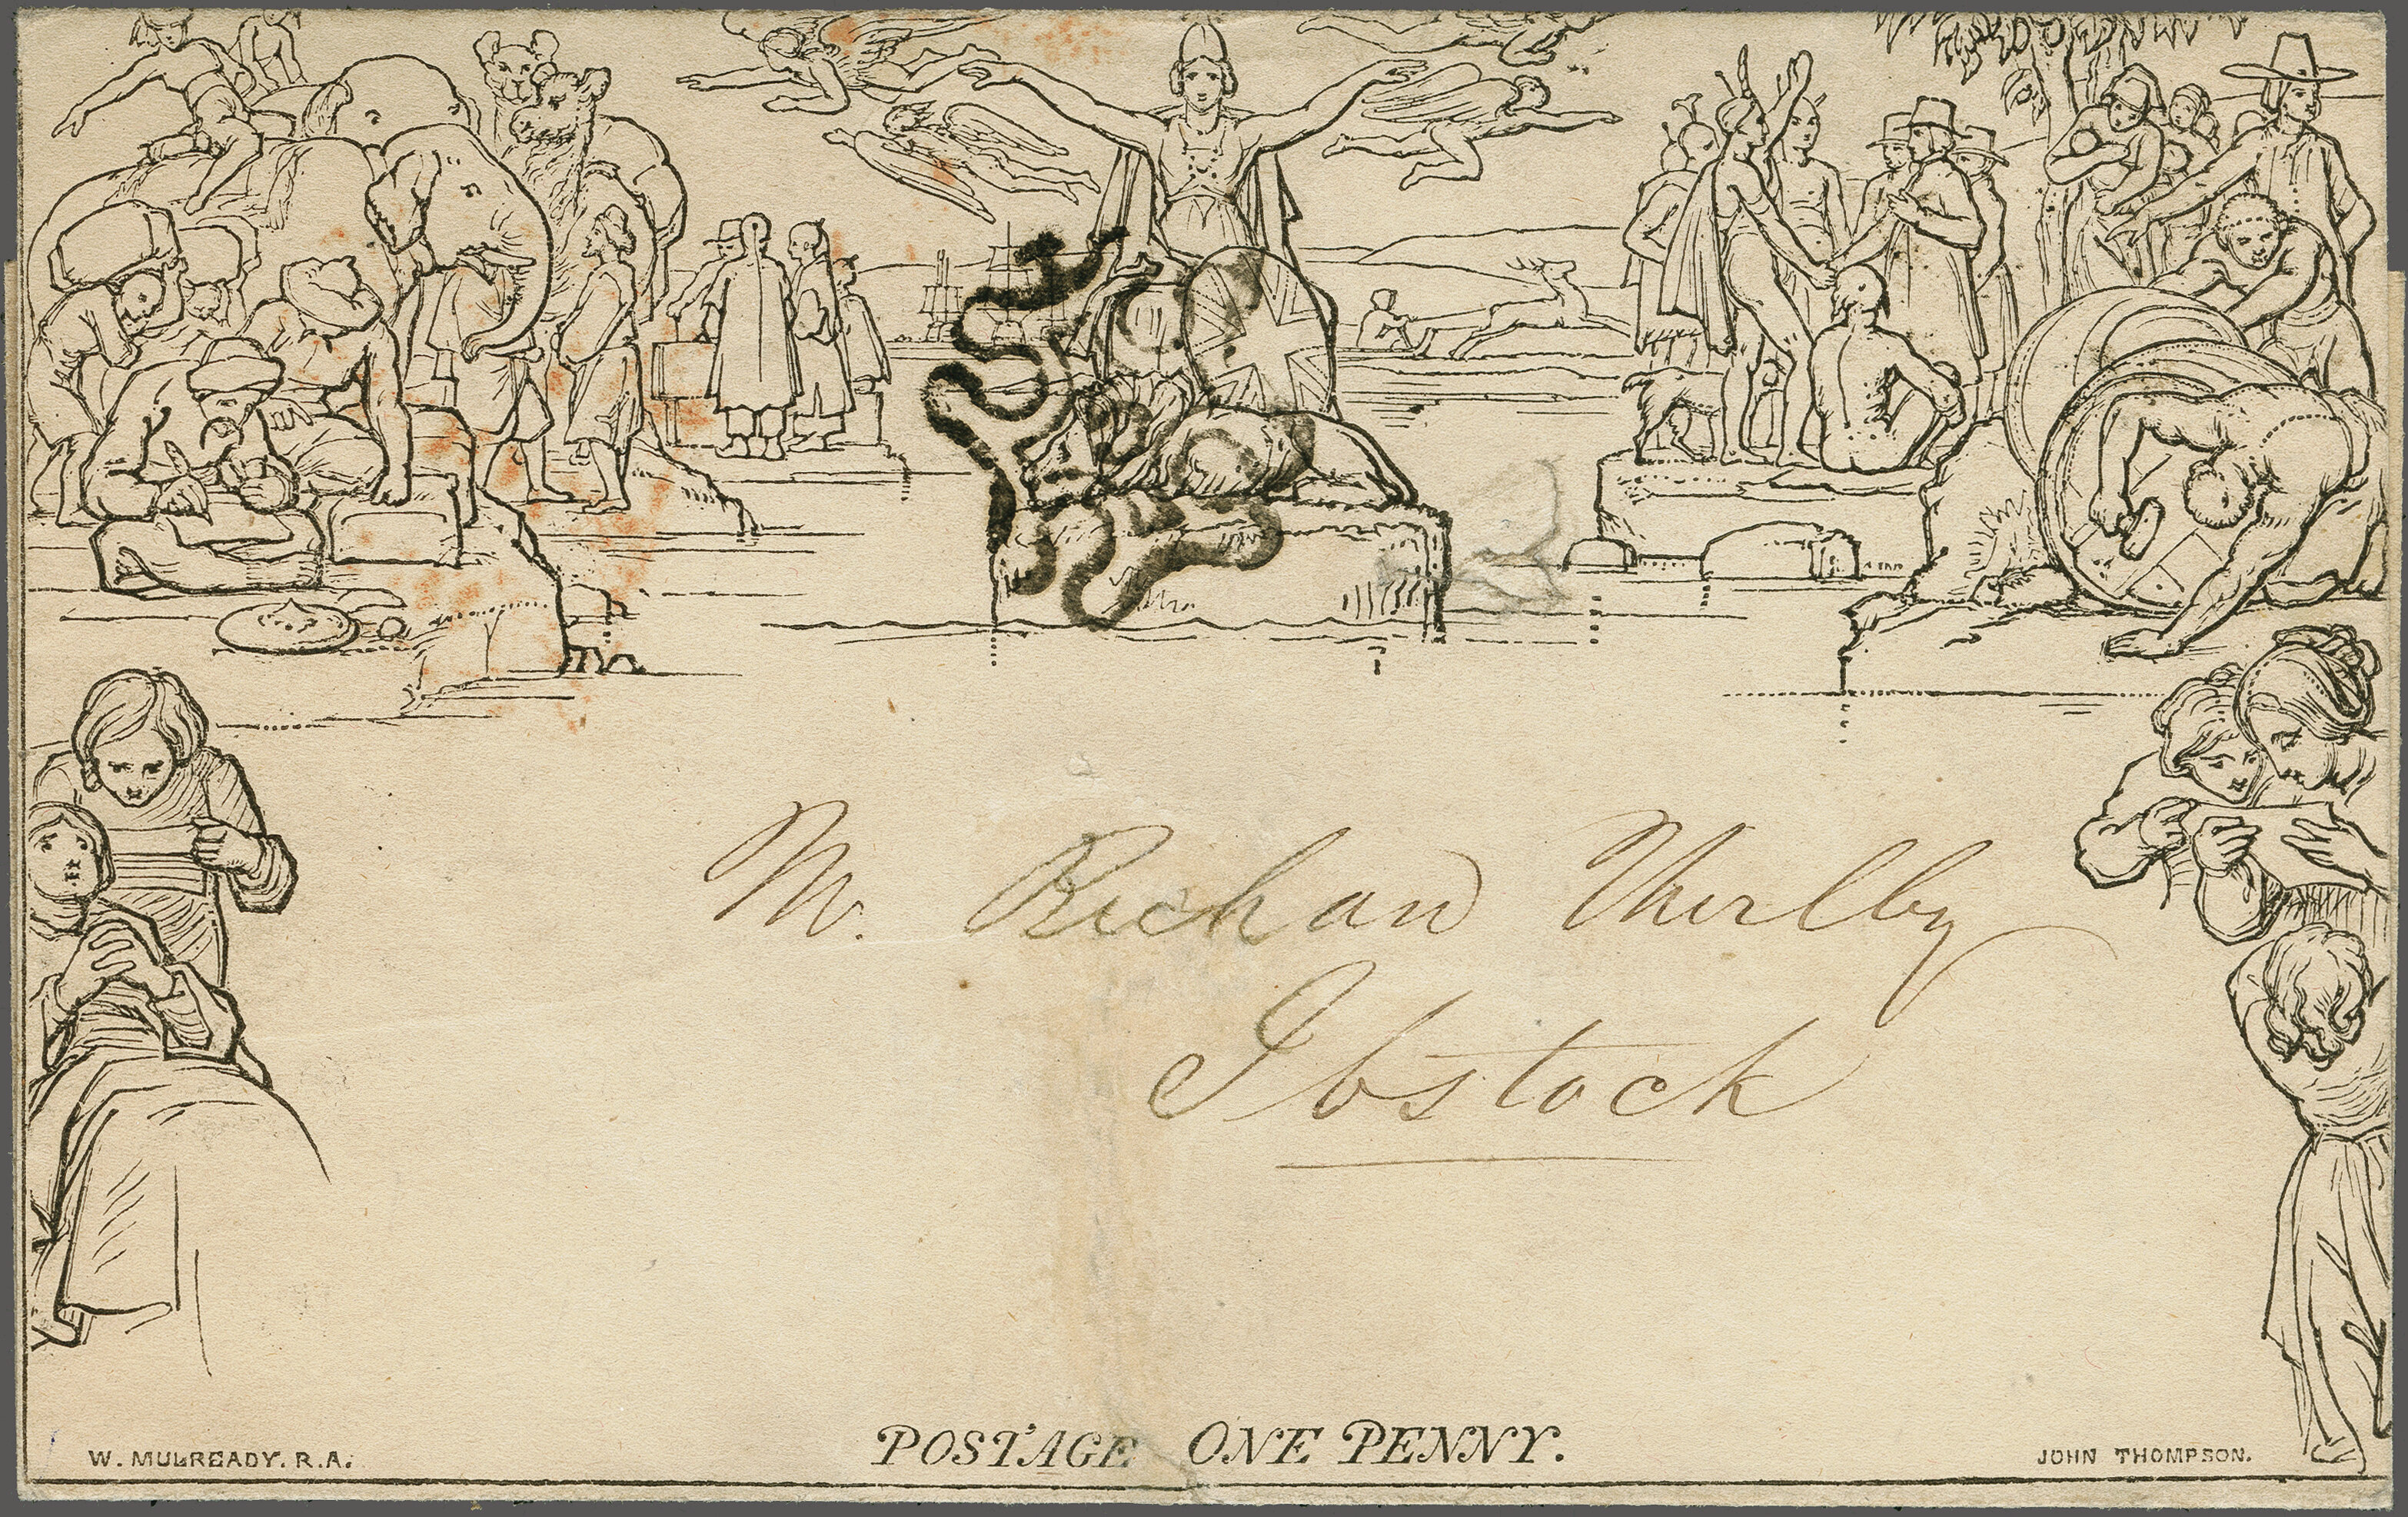 Mr. Richard Thirlby
Ibstock
POSTAGE ONE PENNY.
W. MULREADY. R.A.
JOHN THOMPSON.